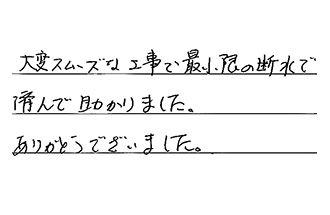 大変スムーズな工事で最小限の断水で
済んで助かりました。
ありがとうございました。